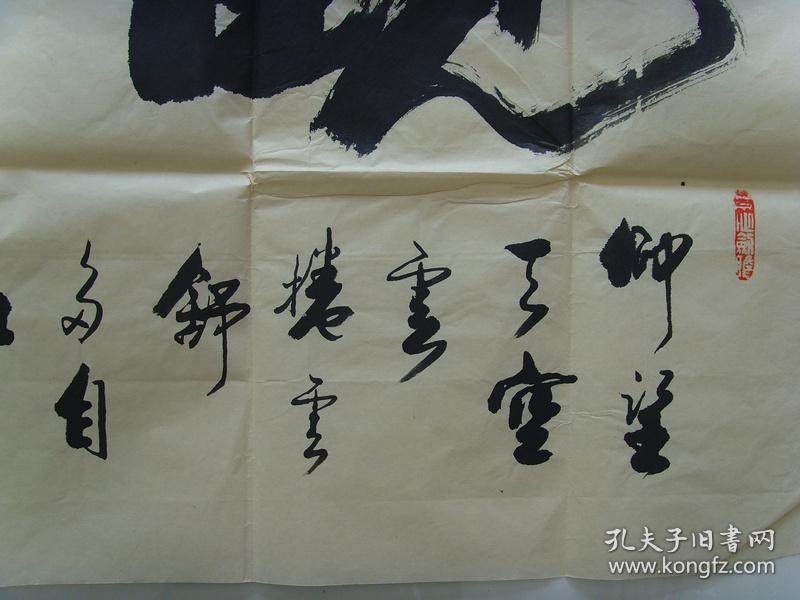 仰望
天空
雲
捲雲
舒
多自
孔夫子旧書网
www.kongfz.com